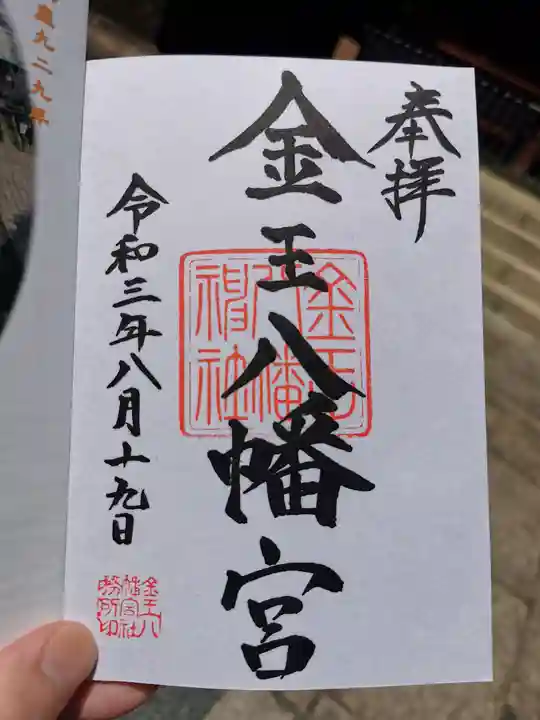 奉拝
金王八幡宮
令和三年八月十九日
金王八幡神社
金王八
幡宮社
務所印